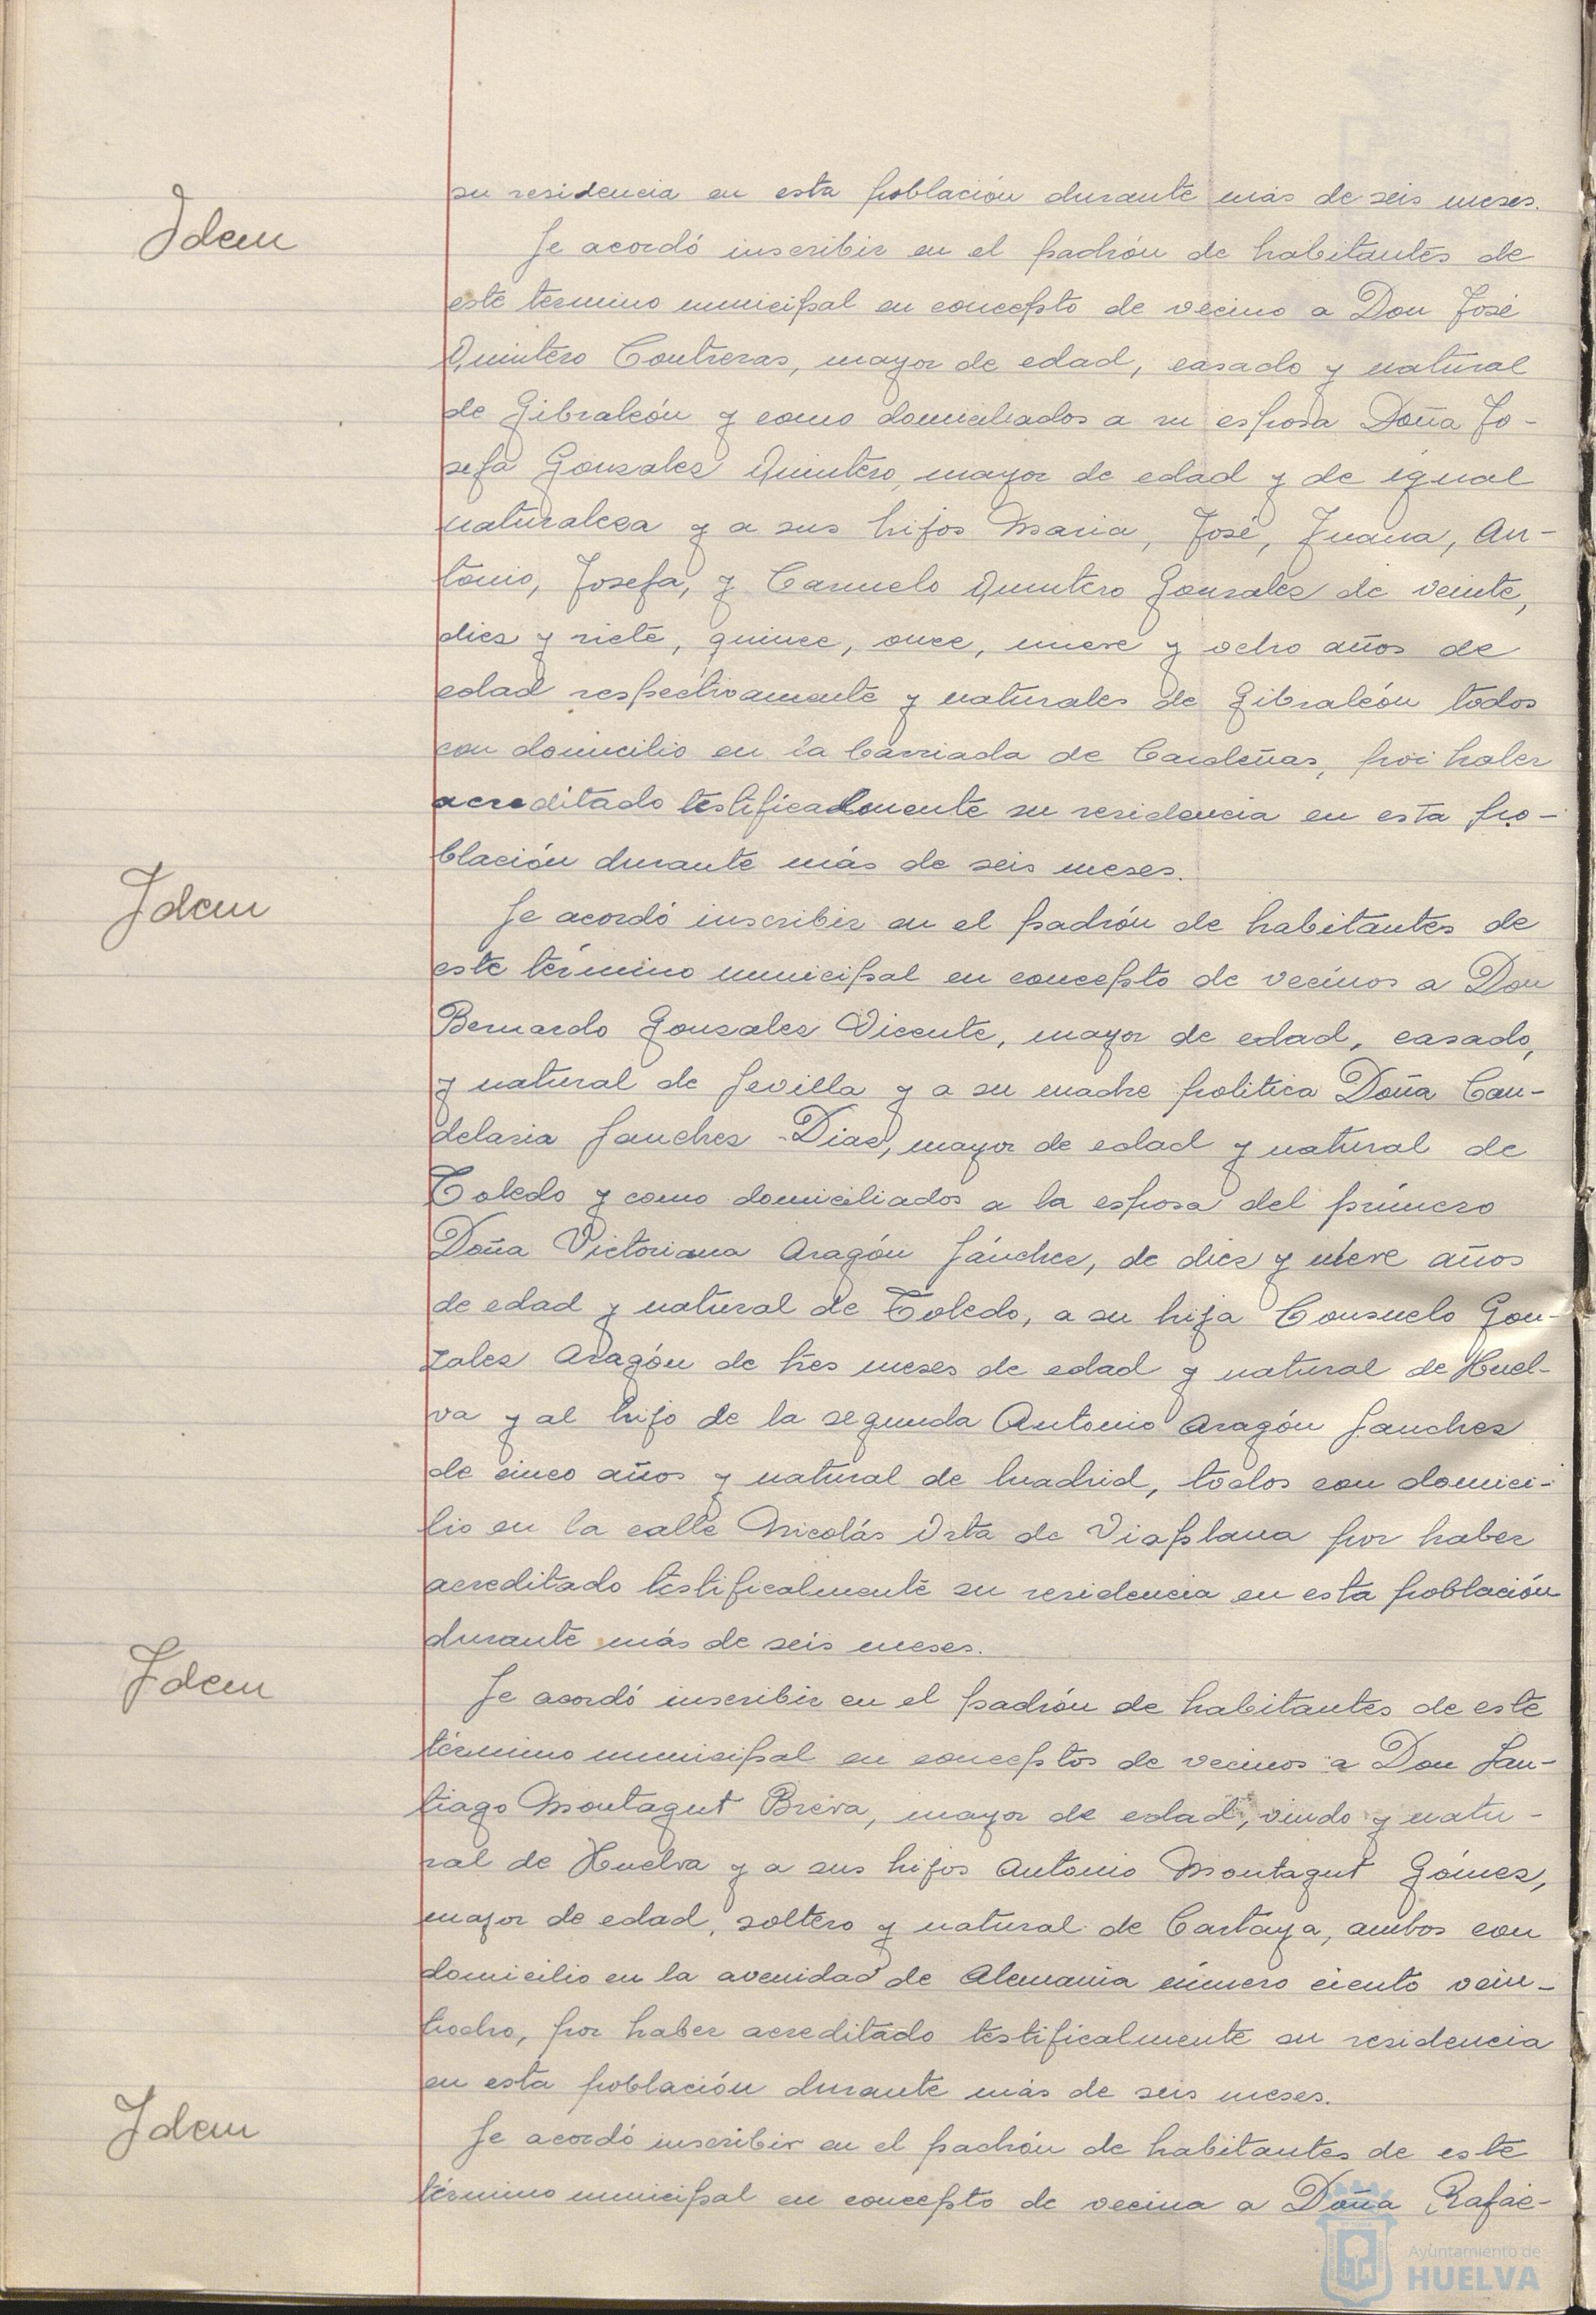 su residencia en esta población durante más de seis meses.
Idem
Se acordó inscribir en el padrón de habitantes de
este termino municipal en concepto de vecino a Don José
Quintero Contreras, mayor de edad, casado y natural
de Gibraleón y como domiciliados a su esposa Doña Jo-
sefa Gonzalez Quintero, mayor de edad y de igual
naturaleza y a sus hijos Maria, José, Juana, An-
tonio, Josefa, y Carmelo Quintero Gonzalez de veinte,
diez y siete, quince, once, nueve y ocho años de
edad respectivamente y naturales de Gibraleón todos
con domicilio en la barriada de Cardeñas, por haber
acreditado testificadlmente su residencia en esta po-
blación durante más de seis meses.
Idem
Se acordó inscribir en el padrón de habitantes de
este término municipal en concepto de vecinos a Don
Bernardo Gonzalez Vicente, mayor de edad, casado,
y natural de Sevilla y a su madre politica Doña Can-
delaria Sanchez Diaz, mayor de edad y natural de
Toledo y como domiciliados a la esposa del primero
Doña Victoriana Aragón Sánchez, de diez y nueve años
de edad y natural de Toledo, a su hija Consuelo Gon-
zalez Aragón de tres meses de edad y natural de Huel-
va y al hijo de la segunda Antonio Aragón Sanchez
de cinco años y natural de Madrid, todos con domici-
lio en la calle Nicolás Orta de Viaplana por haber
acreditado testificalmente su residencia en esta población
durante más de seis meses.
Idem
Se acordó inscribir en el padrón de habitantes de este
término municipal en conceptos de vecinos a Don San-
tiago Montagut Breva, mayor de edad, viudo y natu-
ral de Huelva y a sus hijos Antonio Montagut Gómez,
mayor de edad, soltero y natural de Cartaya, ambos con
domicilio en la avenidad de Alemania número ciento vein-
tiocho, por haber acreditado testificalmente su residencia
en esta población durante más de seis meses.
Idem
Se acordó inscribir en el padrón de habitantes de este
término municipal en concepto de vecina a Doña Rafae-
Ayuntamiento de
HUELVA